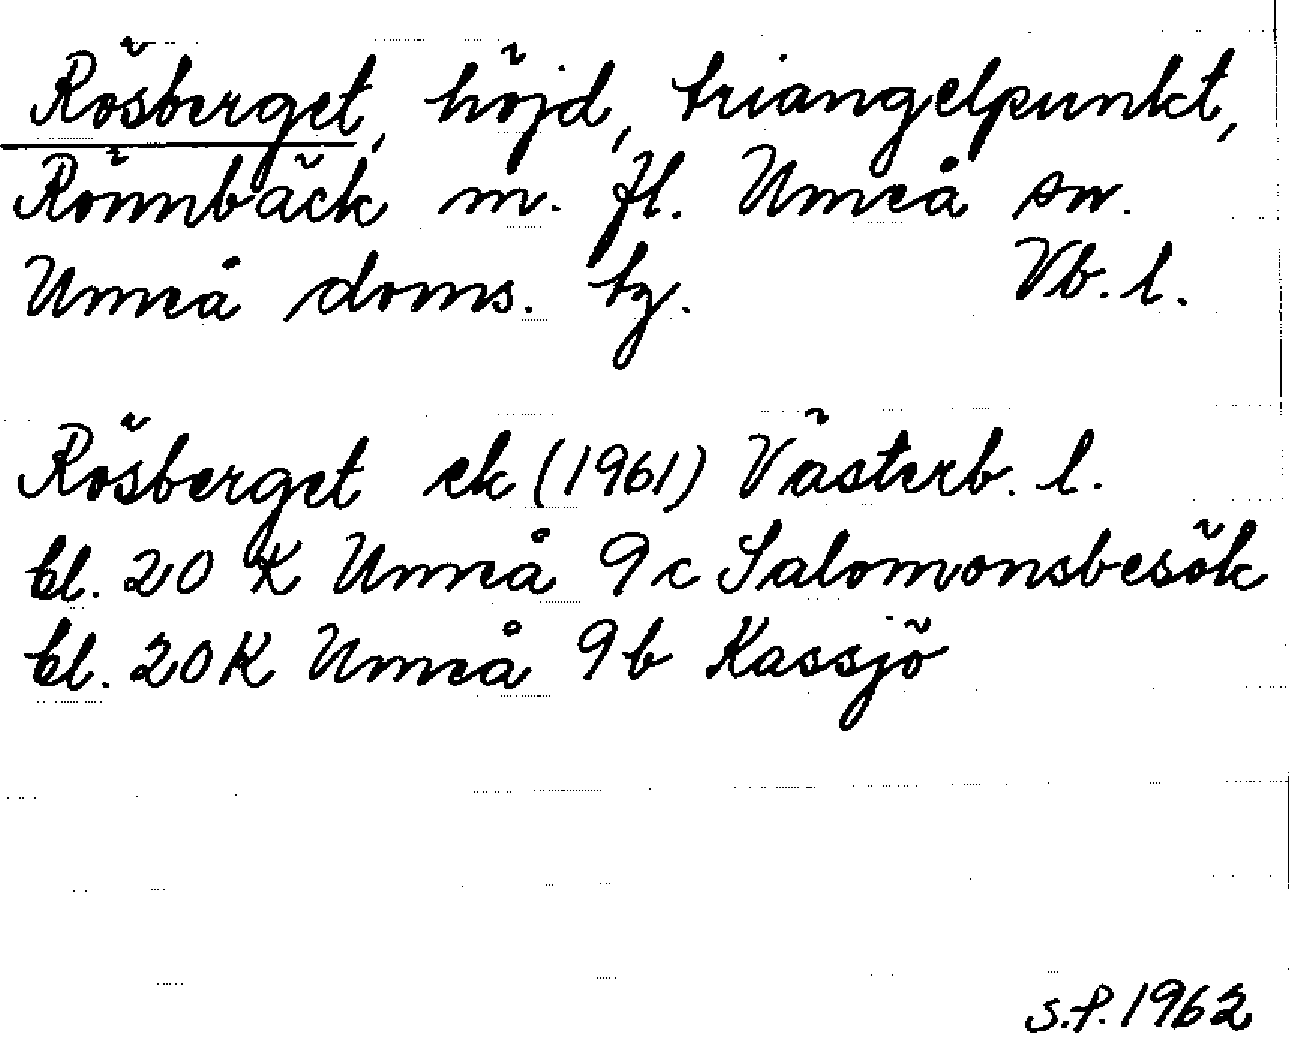 Rösberget, höjd, triangelpunkt,
Rönnbäck m. fl. Umeå sn.
Umeå doms. tg. Vb. l.
Rösberget ek (1961) Västerb. l.
bl. 20 K Umeå 9 c Salomonsbesök
bl. 20 K Umeå 9 b Kassjö
S.P. 1962